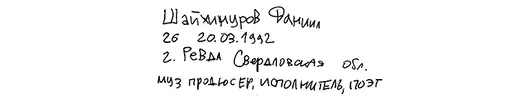 Шайхинуров Даниил
26 20.03.1992
г. Ревда Свердловская обл.
муз продюсер, исполнитель, поэт